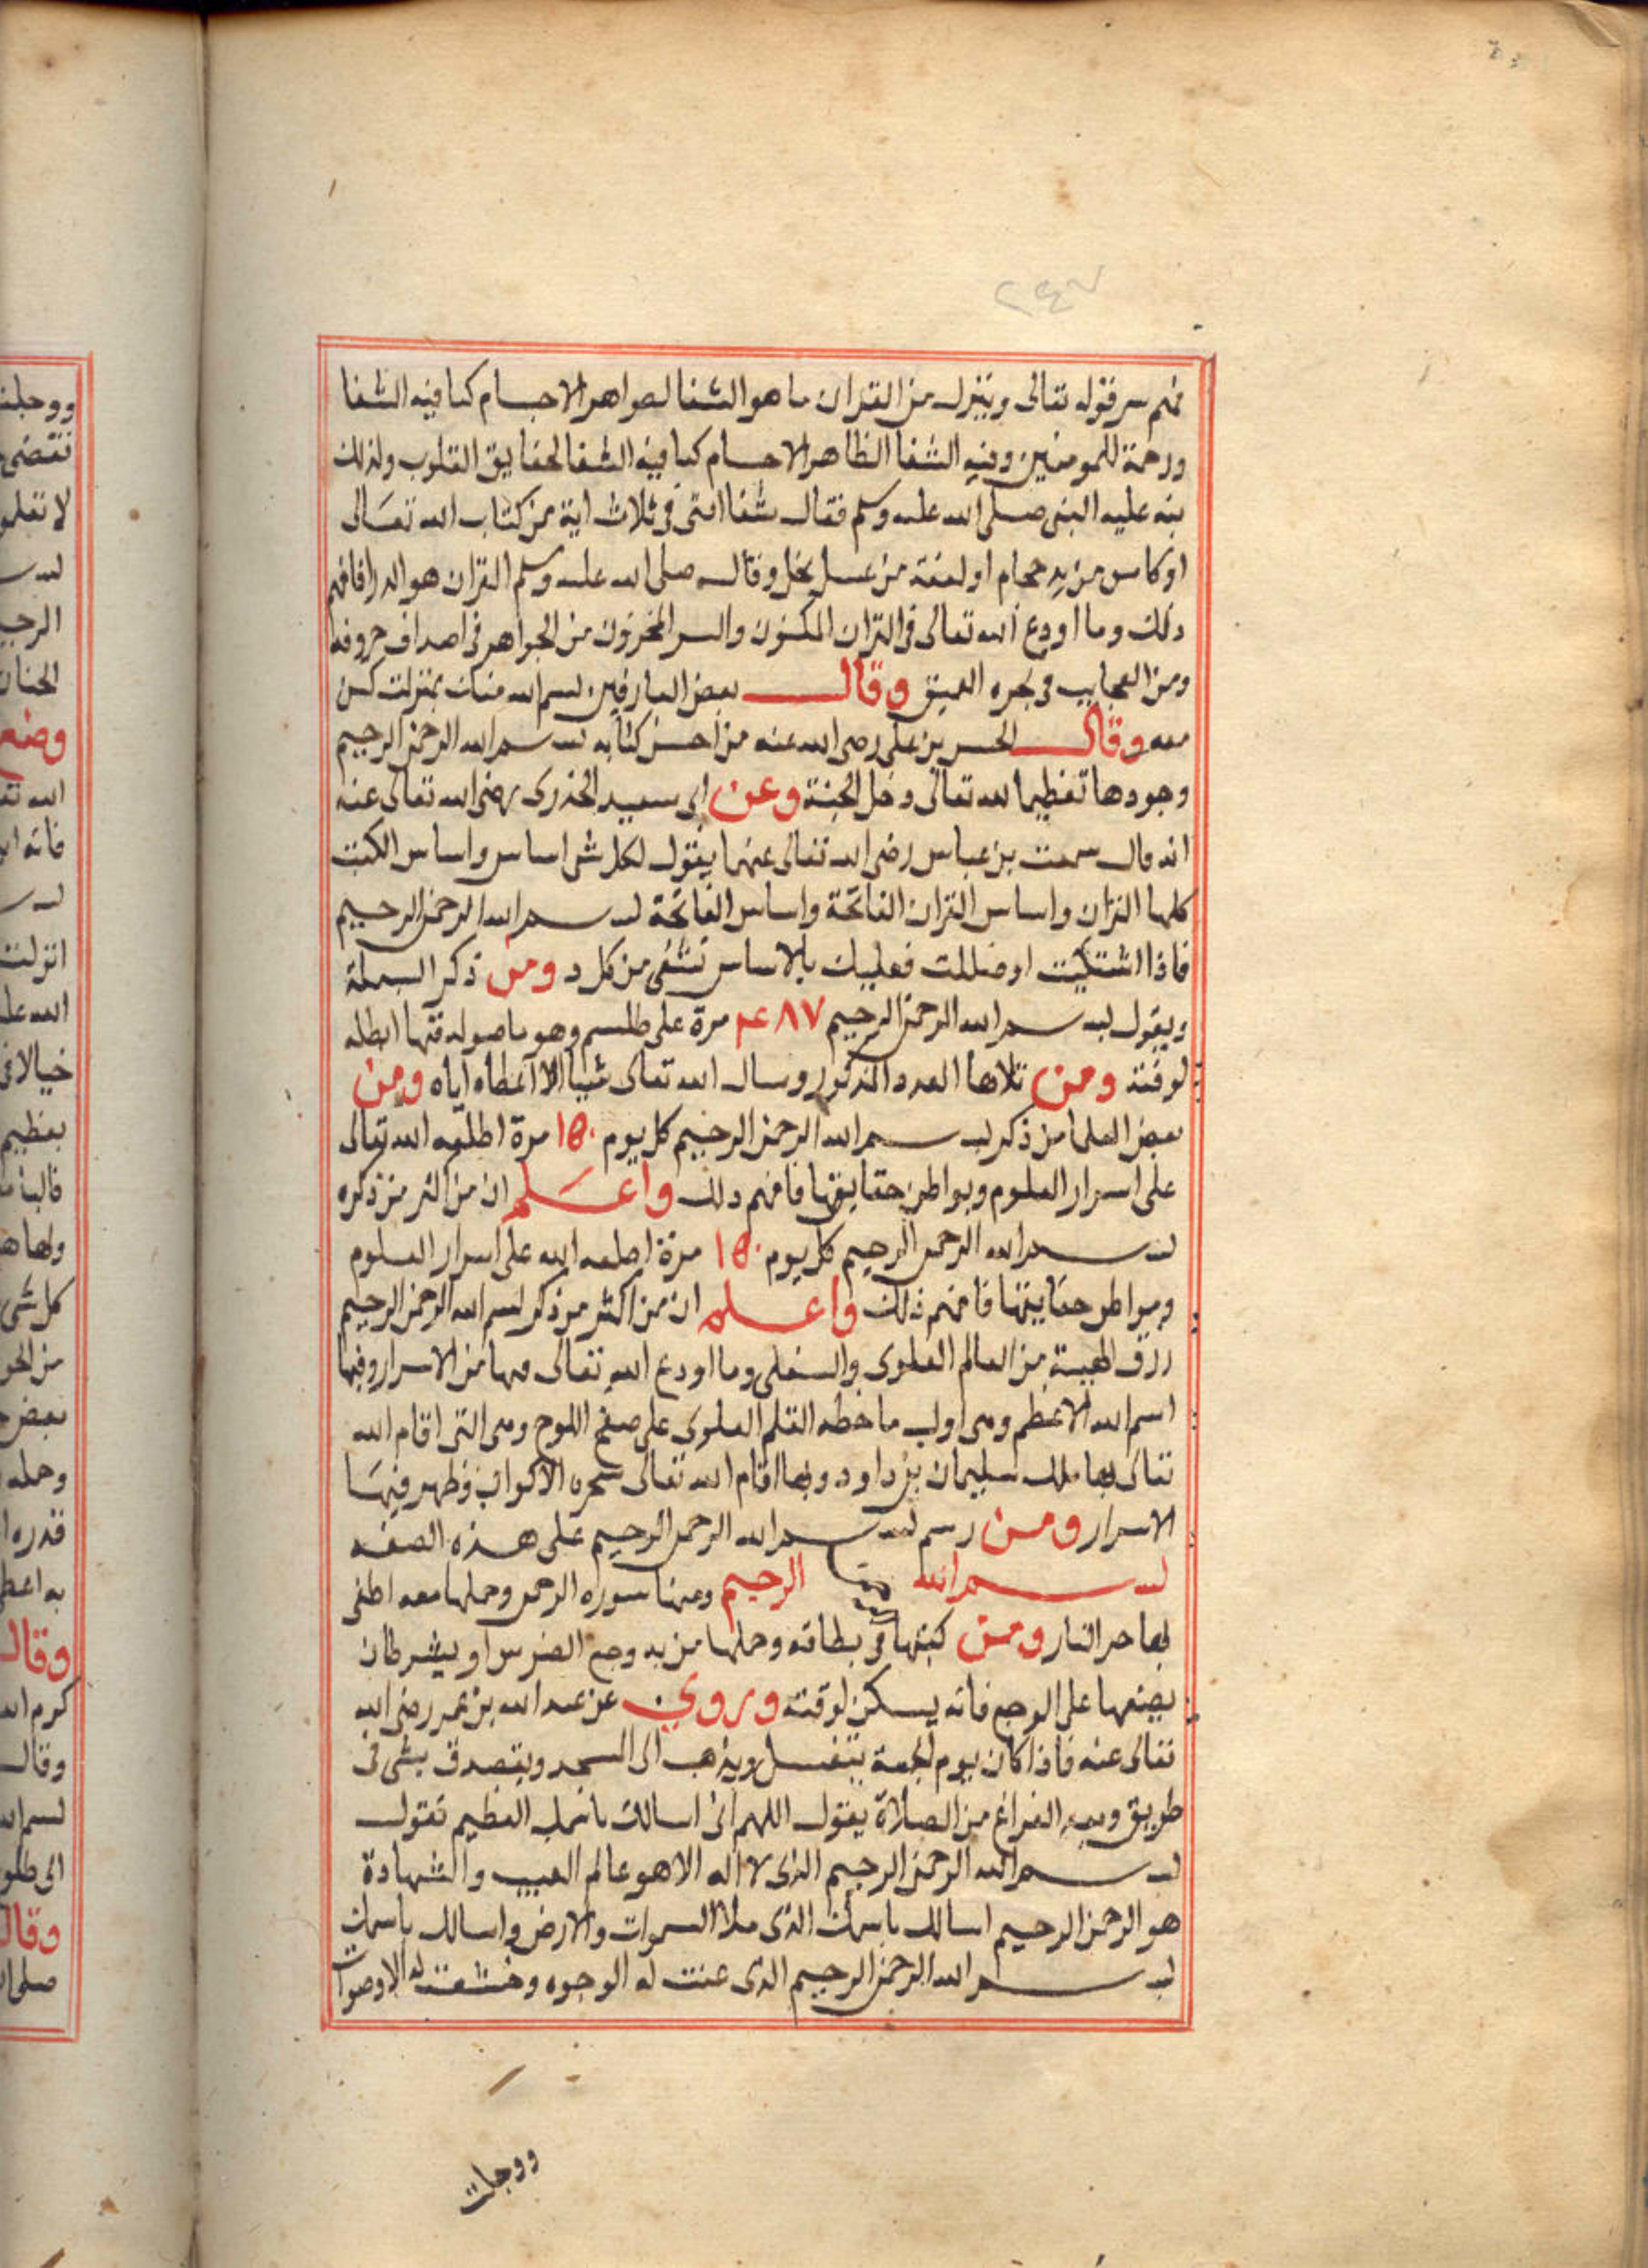 ٢٤٧
فهم سر قوله تعالى وينزل من القران ما هو الشفا لصواهر الاجسام كما فيه الشفا
ورحمة للمومنين وفيه الشفا الظاهر الاجسام كما فيه الشفا لحقايق القلوب ولذلك
نبه عليه النبى صلى الله عليه وسلم فقال شفا امتى فى ثلاث اية من كتاب الله تعالى
او كاس من يد حجام او لعقة من عسل نحل وقال صلى الله عليه وسلم القران هو الدوا فافهم
ذلك وما اودع الله تعالى فى القران المكنون والسر المخزون من الجواهر فى اصداف حروفه
ومن العجايب فى بحره العميق وقال بعض العارفين بسم الله منك بمنزلت كن
منه وقال الحسن بن على رضى الله عنه من احسن كتابه بسم الله الرحمن الرحيم
وجودها تعظيما لله تعالى دخل الجنة وعن ابى سعيد الخذرى رضى الله تعالى عنه
انه قال سمعت بن عباس رضى الله تعالى عنهما يقول لكل شى اساس واساس الكتب
كلها القران واساس القران الفاتحة واساس الفاتحة بسم الله الرحمن الرحيم
فاذا اشتكيت او ضللت فعليك بالاساس تشفى من كل د ومن ذكر البسملة
ويقول بسم الله الرحمن الرحيم ٨٧ع مرة على طلسم وهو ما صوله فيها ابطله
لوقته ومن تلاها العدد المذكور وسال الله تعالى شيا الا اعطاه اياه ومن
بعض العلما من ذكر بسم الله الرحمن الرحيم كل يوم ١٥٠ مرة اطلعه الله تعالى
على اسرار العلوم وبواطن حقايقها فافهم ذلك واعلم ان من اكثر من ذكره
بسم الله الرحمن الرحيم كل يوم ١٥٠ مرة اطلعه الله على اسرار العلوم
وبواطن حقايقها فافهم ذلك واعلم ان من اكثر من ذكر بسم الله الرحمن الرحيم
رزق الهيبة من العالم العلوى والسفلى وما اودع الله تعالى فيها من الاسرار وفيها
اسم الله الاعظم وهى اول ما خطه القلم العلوى على صفح اللوح وهى التى اقام الله
تعالى بها ملك سليمان بن داود وبها اقام الله تعالى الاكوان وظهر فيها
الاسرار ومن رسم بسم الله الرحمن الرحيم على هذه الصفه
بسم الله الرحيم ومنها سوره الرحمن وحملها معه اطفى
بها حر النار ومن كتبها فى بطاقه وحملها من به وجع الضرس او بشرط ان
يضعها على الوجع فانه يسكن لوقته وروى عن عبد الله بن عمر رضى الله
تعالى عنه فاذا كان يوم الجمعة يتغسل ويذهب الى المسجد ويتصدق بشى فى
طريق وبعد الفراغ من الصلاة يقول اللهم انى اسالك باسمك العظيم تقول
بسم الله الرحمن الرحيم الذى لا اله الا هو عالم الغيب والشهادة
هو الرحمن الرحيم اسالك باسمك الذى ملا السموات والارض واسالك باسمك
بسم الله الرحمن الرحيم الذى عنت له الوجوه وخشعت له الاوصوات
ووجلت